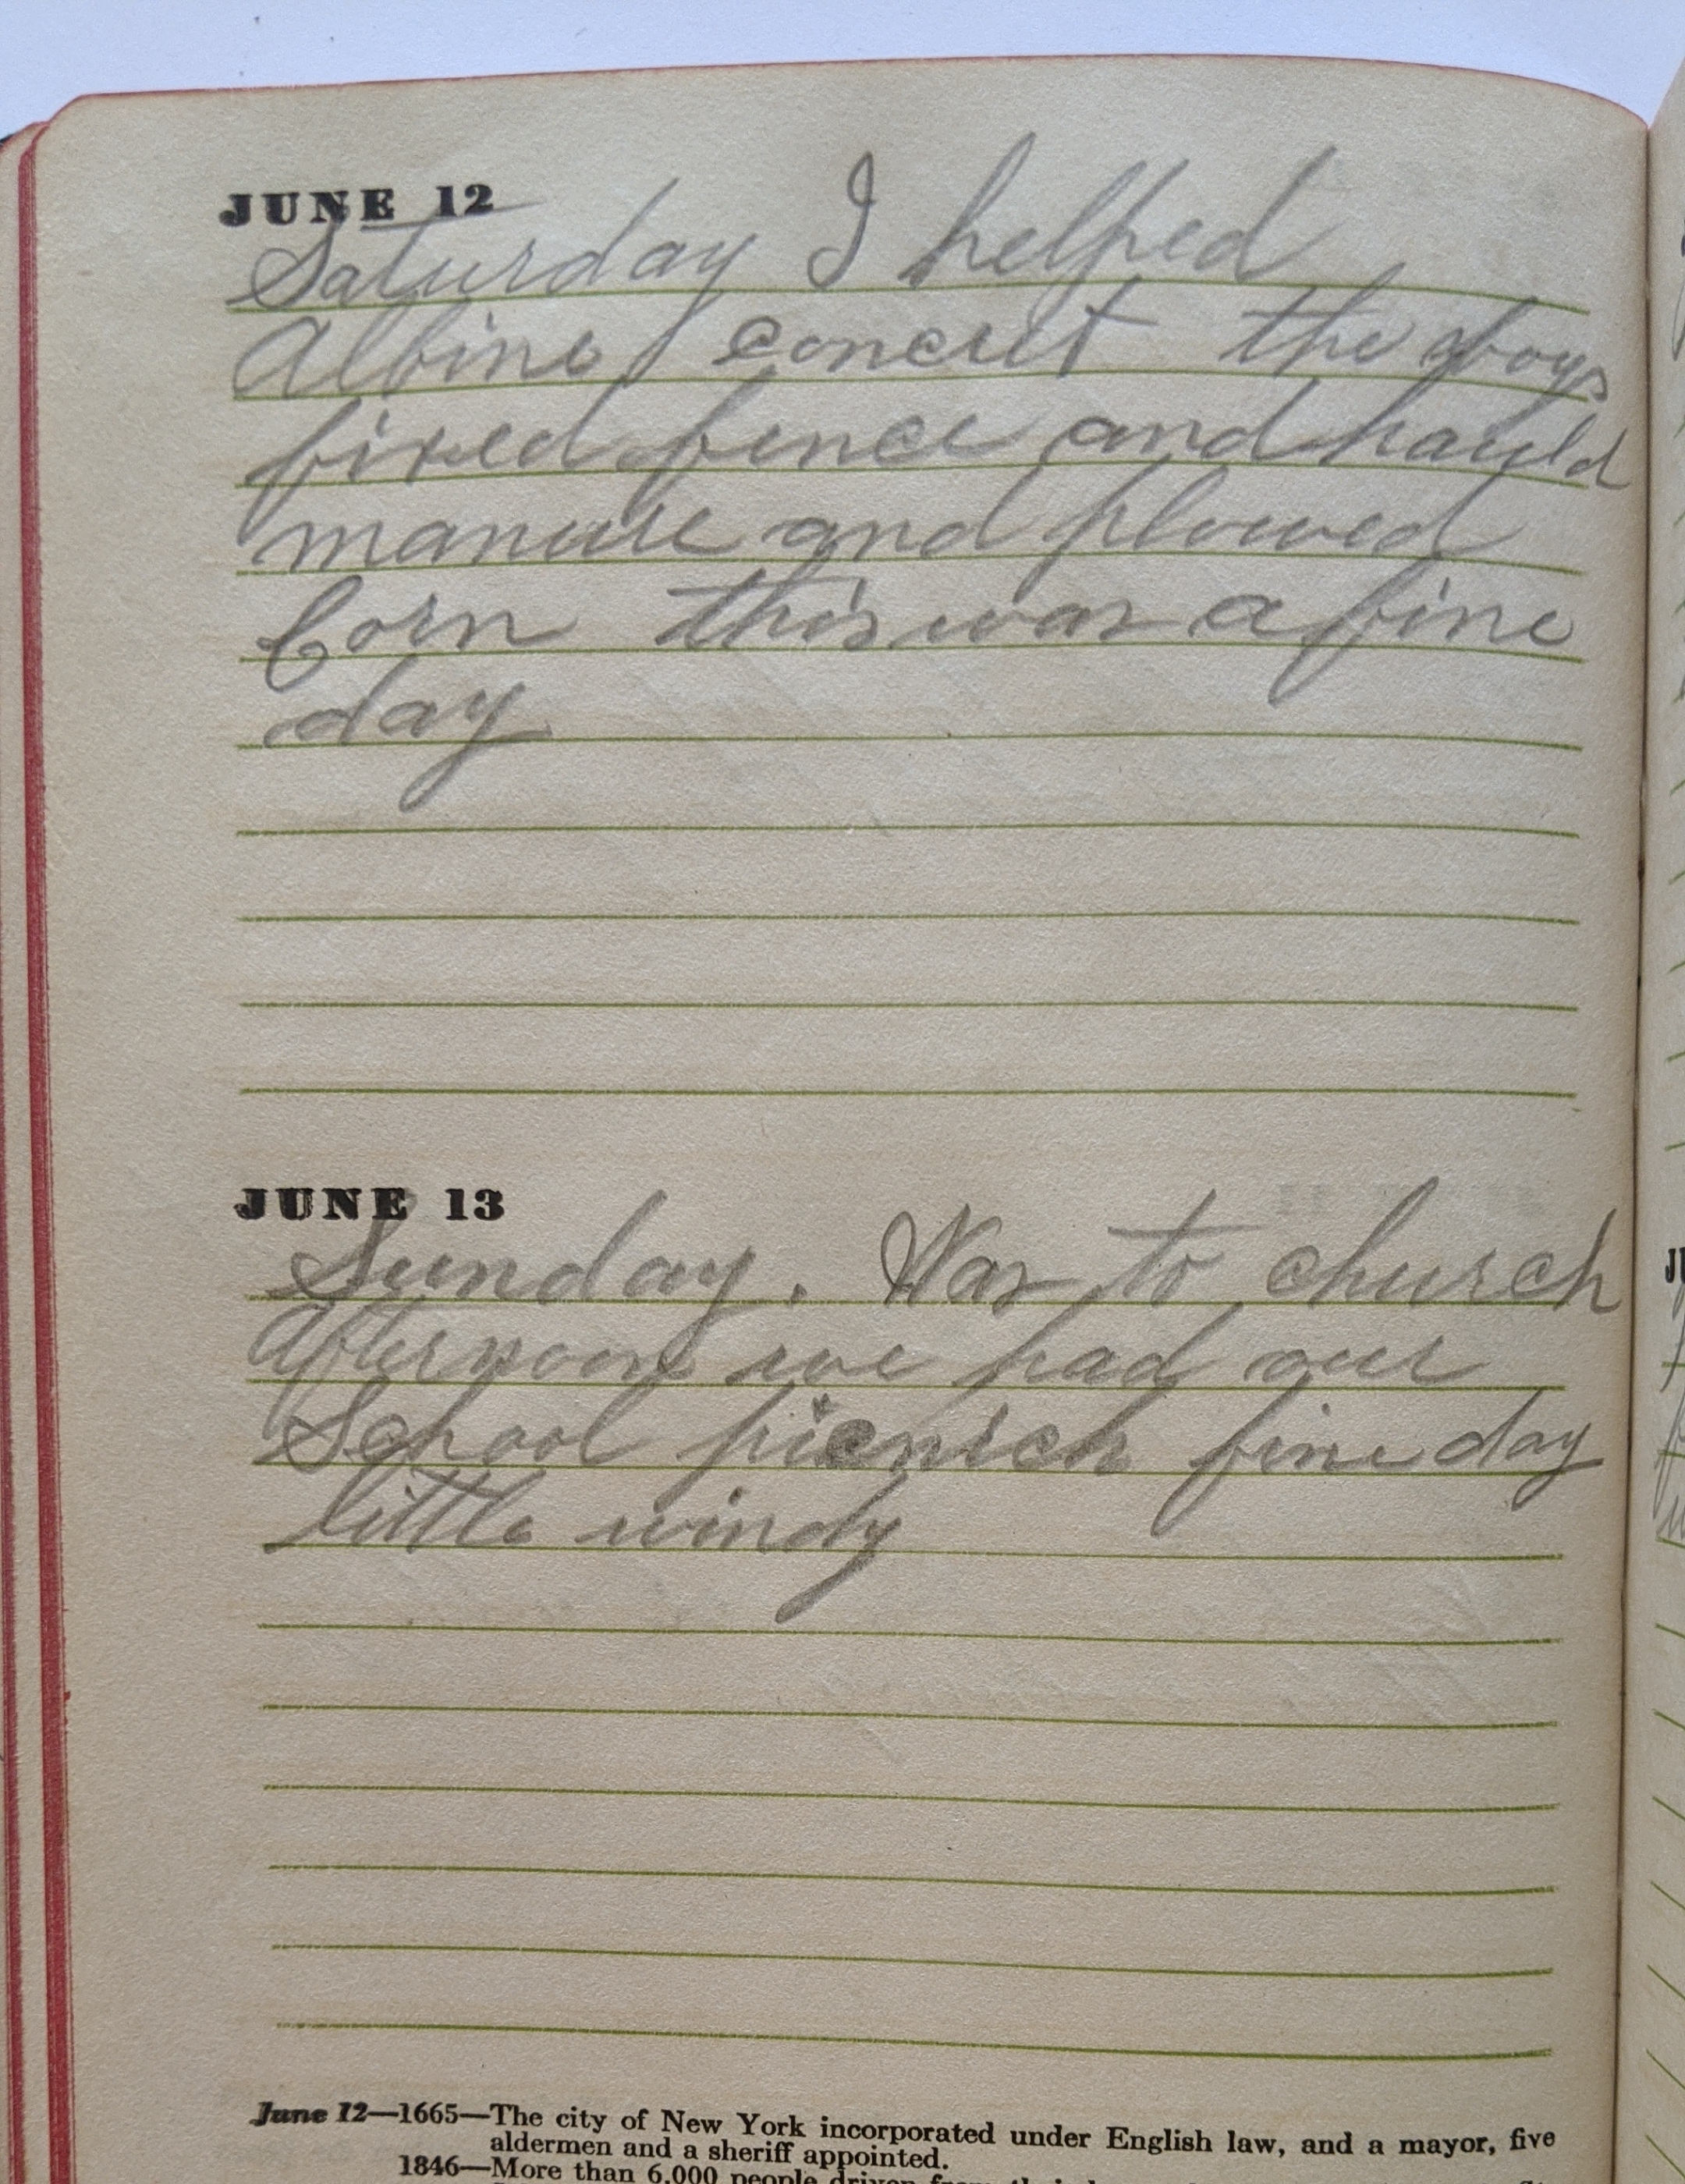 JUNE 12
Saturday I helped
Albine concrit the boys
fixed fence and hauld
manure and plowed
Corn this was a fine
day
JUNE 13
Sunday. Was to church
Afternoon we had our
School picnich fine day
little windy
June 12—1665—The city of New York incorporated under English law, and a mayor, five
aldermen and a sheriff appointed.
1846—More than 6,000 people driven from